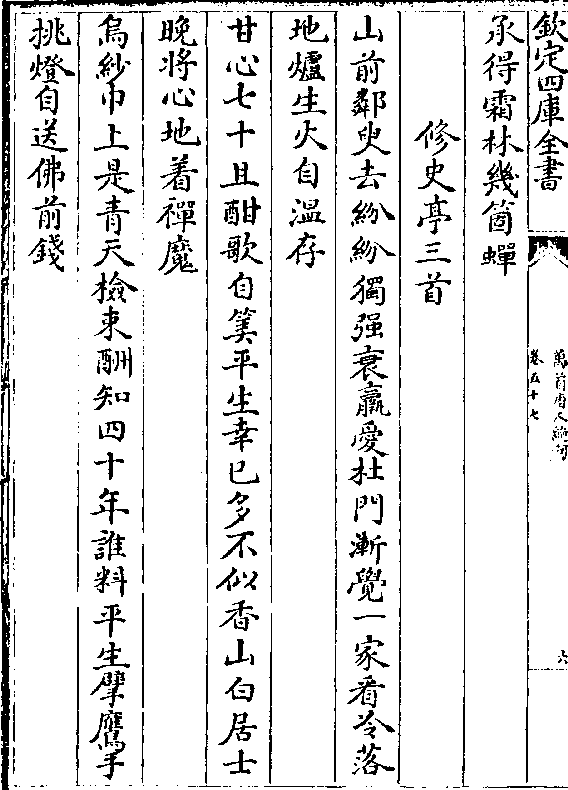 欽定四庫全書
萬首唐人絶句
卷五十七
六
承得霜林幾箇蟬
修史亭三首
山前鄰叟去紛紛獨强衰羸愛杜門漸覺一家看冷落
地爐生火自温存
甘心七十且酣歌自筭平生幸已多不似香山白居士
晚將心地着禪魔
烏紗巾上是青天檢束酬知四十年誰料平生擘鷹手
挑燈自送佛前錢